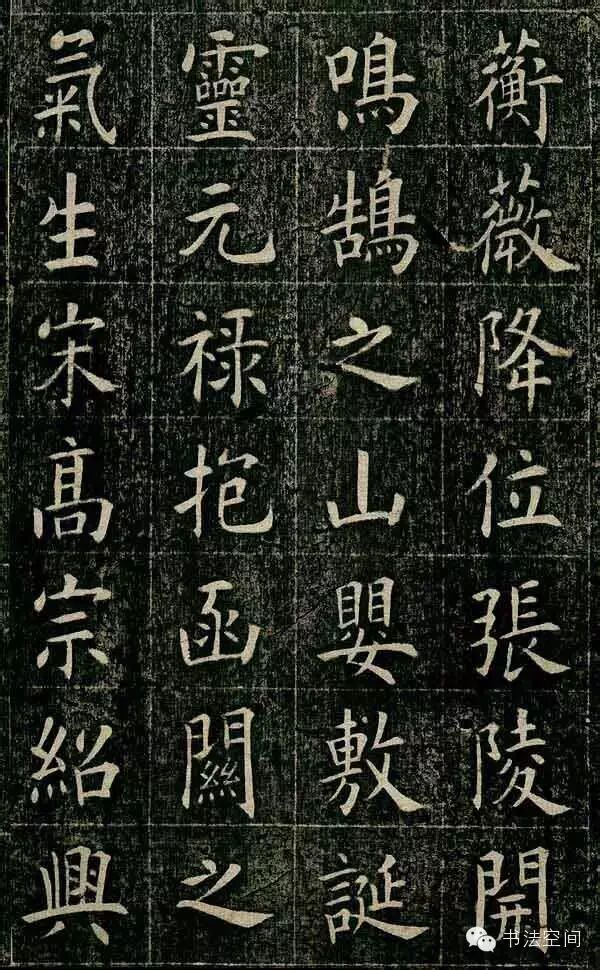 蘅薇降位張陵開
鳴鵠之山嬰敷誕
靈元禄抱函關之
氣生宋髙宗紹興
书法空间